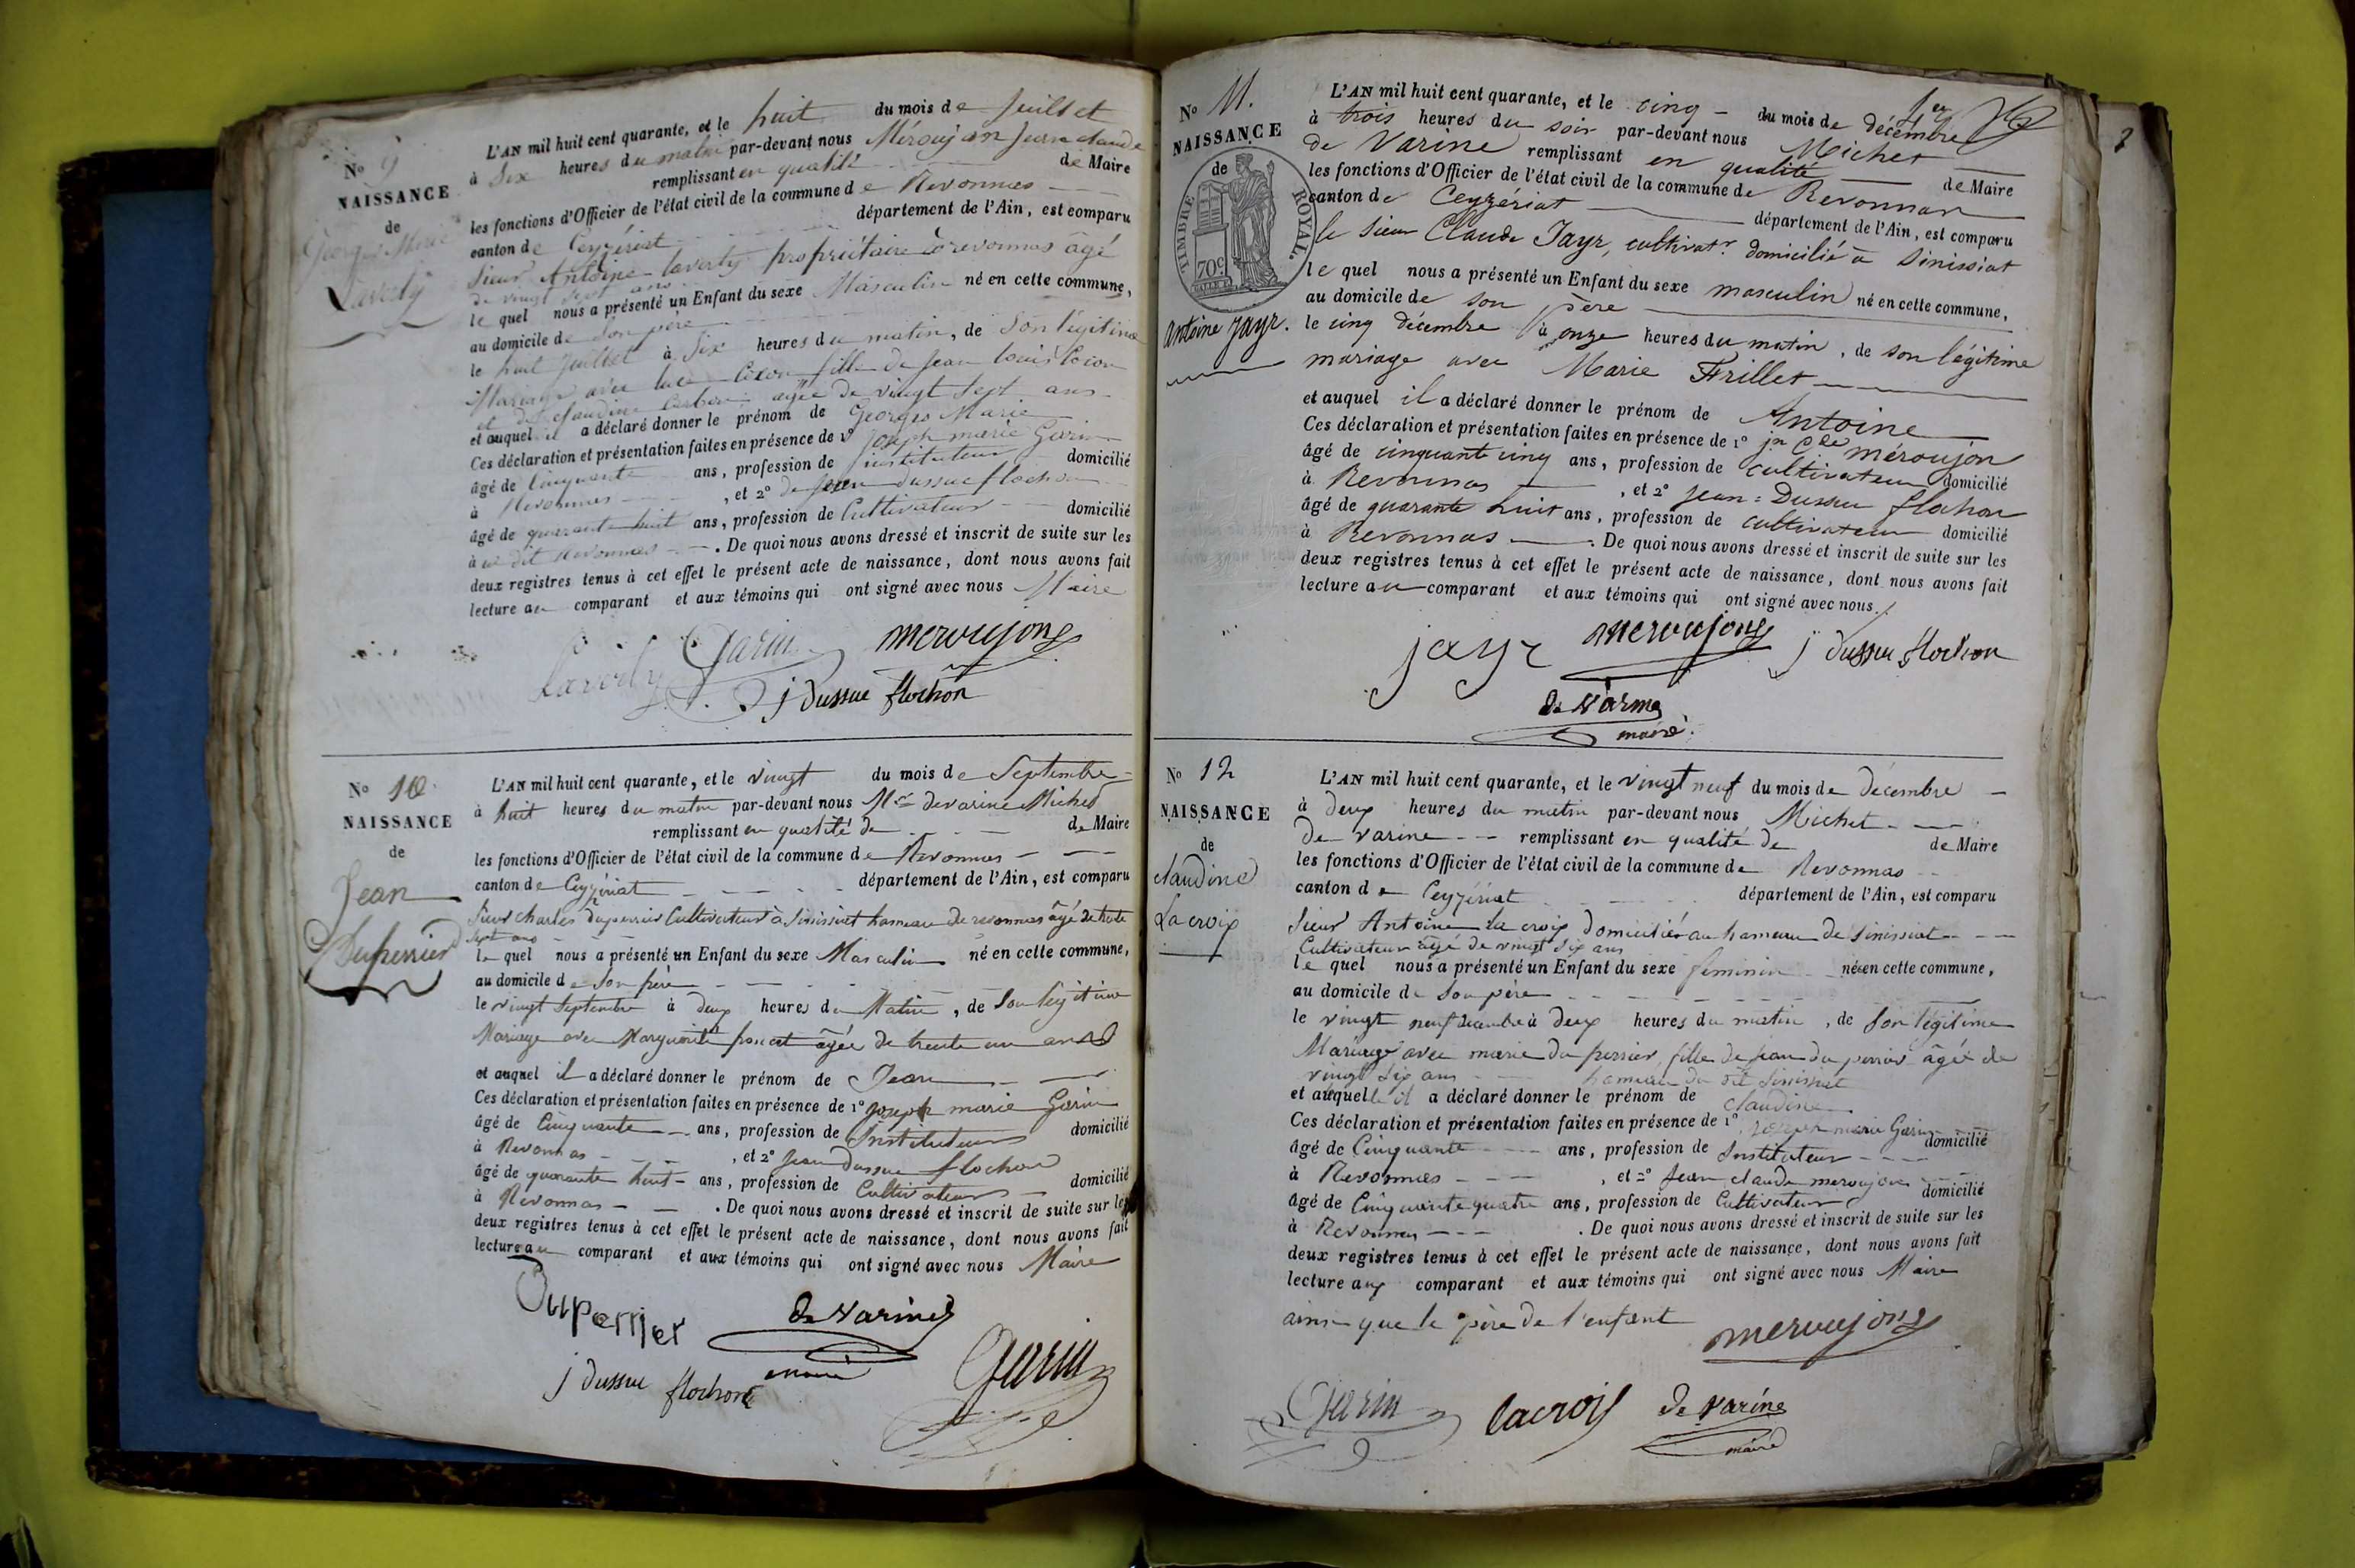 No 9
NAISSANCE
de
Georges Marie
Laverly
L'AN mil huit cent quarante, et le huit du mois de Juillet
à Six heures du matin par-devant nous Méroujon Jean claude
remplissant en qualité de Maire
les fonctions d'Officier de l'état civil de la commune de Revonnas
canton de Ceyzériat département de l'Ain, est comparu
Sieur Antoine Laverly propriétaire à revonnas âgé
de vingt sept ans
le quel nous a présenté un Enfant du sexe Masculin né en cette commune,
au domicile de Son père
le huit Juillet à Six heures du matin, de Son légitime
Mariage avec fille de Jean louis
et de âgée de vingt sept ans
et auquel il a déclaré donner le prénom de Georges Marie
Ces déclaration et présentation faites en présence de 1º Joseph marie Garin
âgé de Cinquante ans, profession de instituteur domicilié
à Revonnas , et 2º Jean dussue flochon
âgé de quarante huit ans, profession de Cultivateur domicilié
à dit Revonnas . De quoi nous avons dressé et inscrit de suite sur les
deux registres tenus à cet effet le présent acte de naissance, dont nous avons fait
lecture au comparant et aux témoins qui ont signé avec nous Maire
Laverly Garin meroujon
j dussue flochon
No 10
NAISSANCE
de
Jean
Duperrier
L'AN mil huit cent quarante, et le vingt du mois de Septembre
à huit heures du matin par-devant nous Mr devarine Michel
remplissant en qualité de de Maire
les fonctions d'Officier de l'état civil de la commune de Revonnas
canton de Ceyzériat département de l'Ain, est comparu
Sieur Charles duperrier Cultivateur à Sinissiat hameau de revonnas âgé de trente
sept ans
le quel nous a présenté un Enfant du sexe Masculin né en cette commune,
au domicile de Son père
le vingt Septembre à deux heures du Matin, de Son légitime
Mariage avec Marguerite âgée de trente un ans
et auquel il a déclaré donner le prénom de Jean
Ces déclaration et présentation faites en présence de 1º joseph marie Garin
âgé de Cinquante ans, profession de Instituteur domicilié
à Revonnas , et 2º Jean Dussue flochon
âgé de quarante huit ans, profession de Cultivateur domicilié
à Revonnas . De quoi nous avons dressé et inscrit de suite sur les
deux registres tenus à cet effet le présent acte de naissance, dont nous avons fait
lecture au comparant et aux témoins qui ont signé avec nous Maire
Duperrier de Varine
maire
j dussue flochon Garin
No 11.
NAISSANCE
de
TIMBRE ROYAL.
70c
Antoine Jayr.
1er
L'AN mil huit cent quarante, et le cinq du mois de décembre
à trois heures du soir par-devant nous Michel
de Varine remplissant en qualité de Maire
les fonctions d'Officier de l'état civil de la commune de Revonnas
canton de Ceyzériat département de l'Ain, est comparu
le sieur Claude Jayr, cultivatr. domicilié à Sinissiat
le quel nous a présenté un Enfant du sexe masculin né en cette commune,
au domicile de son père
le cinq décembre à onze heures du matin, de son légitime
mariage avec Marie Frillet
et auquel il a déclaré donner le prénom de Antoine
Ces déclaration et présentation faites en présence de 1º jn Cde méroujon
âgé de cinquante cinq ans, profession de cultivateur domicilié
à Revonnas , et 2º Jean = Dussue flochon
âgé de quarante huit ans, profession de cultivateur domicilié
à Revonnas . De quoi nous avons dressé et inscrit de suite sur les
deux registres tenus à cet effet le présent acte de naissance, dont nous avons fait
lecture au comparant et aux témoins qui ont signé avec nous.
jayr meroujon j dussue flochon
de Varine
maire.
No 12
NAISSANCE
de
claudine
Lacroix
L'AN mil huit cent quarante, et le vingt neuf du mois de décembre
à deux heures du matin par-devant nous Michel
de Varine remplissant en qualité de de Maire
les fonctions d'Officier de l'état civil de la commune de Revonnas
canton de Ceyzériat département de l'Ain, est comparu
Sieur Antoine La croix domicilié au hameau de Sinissiat
Cultivateur âgé de vingt six ans
le quel nous a présenté un Enfant du sexe feminin née en cette commune,
au domicile de Son père
le vingt neuf decembre à deux heures du matin, de Son légitime
Mariage avec marie du perrier fille de jean du perrier âgée de
vingt six ans hameau du dit Sinissiat
et auquelle il a déclaré donner le prénom de claudine
Ces déclaration et présentation faites en présence de 1º joseph marie Garin
âgé de Cinquante ans, profession de Instituteur domicilié
à Revonnas , et 2º Jean claude meroujon
âgé de Cinquante quatre ans, profession de Cultivateur domicilié
à Revonnas . De quoi nous avons dressé et inscrit de suite sur les
deux registres tenus à cet effet le présent acte de naissance, dont nous avons fait
lecture aux comparant et aux témoins qui ont signé avec nous Maire
ainsi que le père de l'enfant meroujon
Garin lacroix de Varine
maire